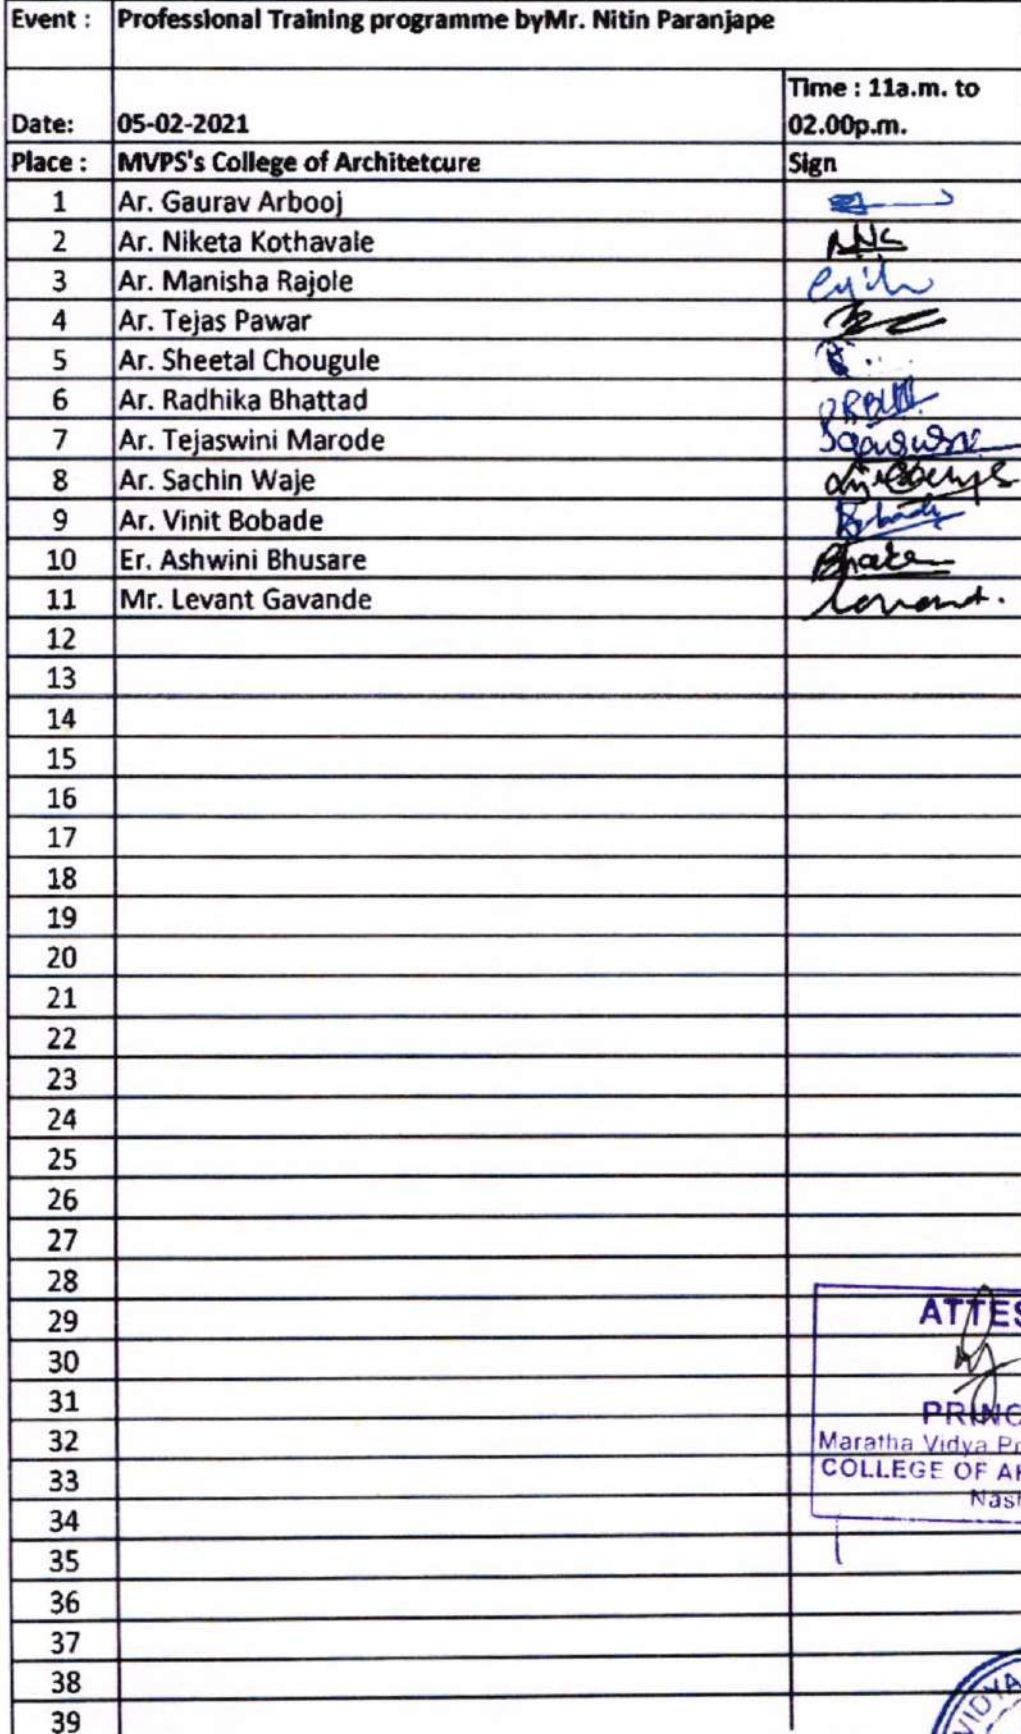 Event : Professional Training programme byMr. Nitin Paranjape
Time : 11a.m. to
Date: 05-02-2021 02.00p.m.
Place : MVPS's College of Architetcure Sign
1 Ar. Gaurav Arbooj
2 Ar. Niketa Kothavale
3 Ar. Manisha Rajole
4 Ar. Tejas Pawar
5 Ar. Sheetal Chougule
6 Ar. Radhika Bhattad
7 Ar. Tejaswini Marode
8 Ar. Sachin Waje
9 Ar. Vinit Bobade
10 Er. Ashwini Bhusare
11 Mr. Levant Gavande
12
13
14
15
16
17
18
19
20
21
22
23
24
25
26
27
28
29 ATTES
30
31 PRINC
32 Maratha Vidya Pr
33 COLLEGE OF AR
Nas
34
35
36
37
38 VIDYA
39